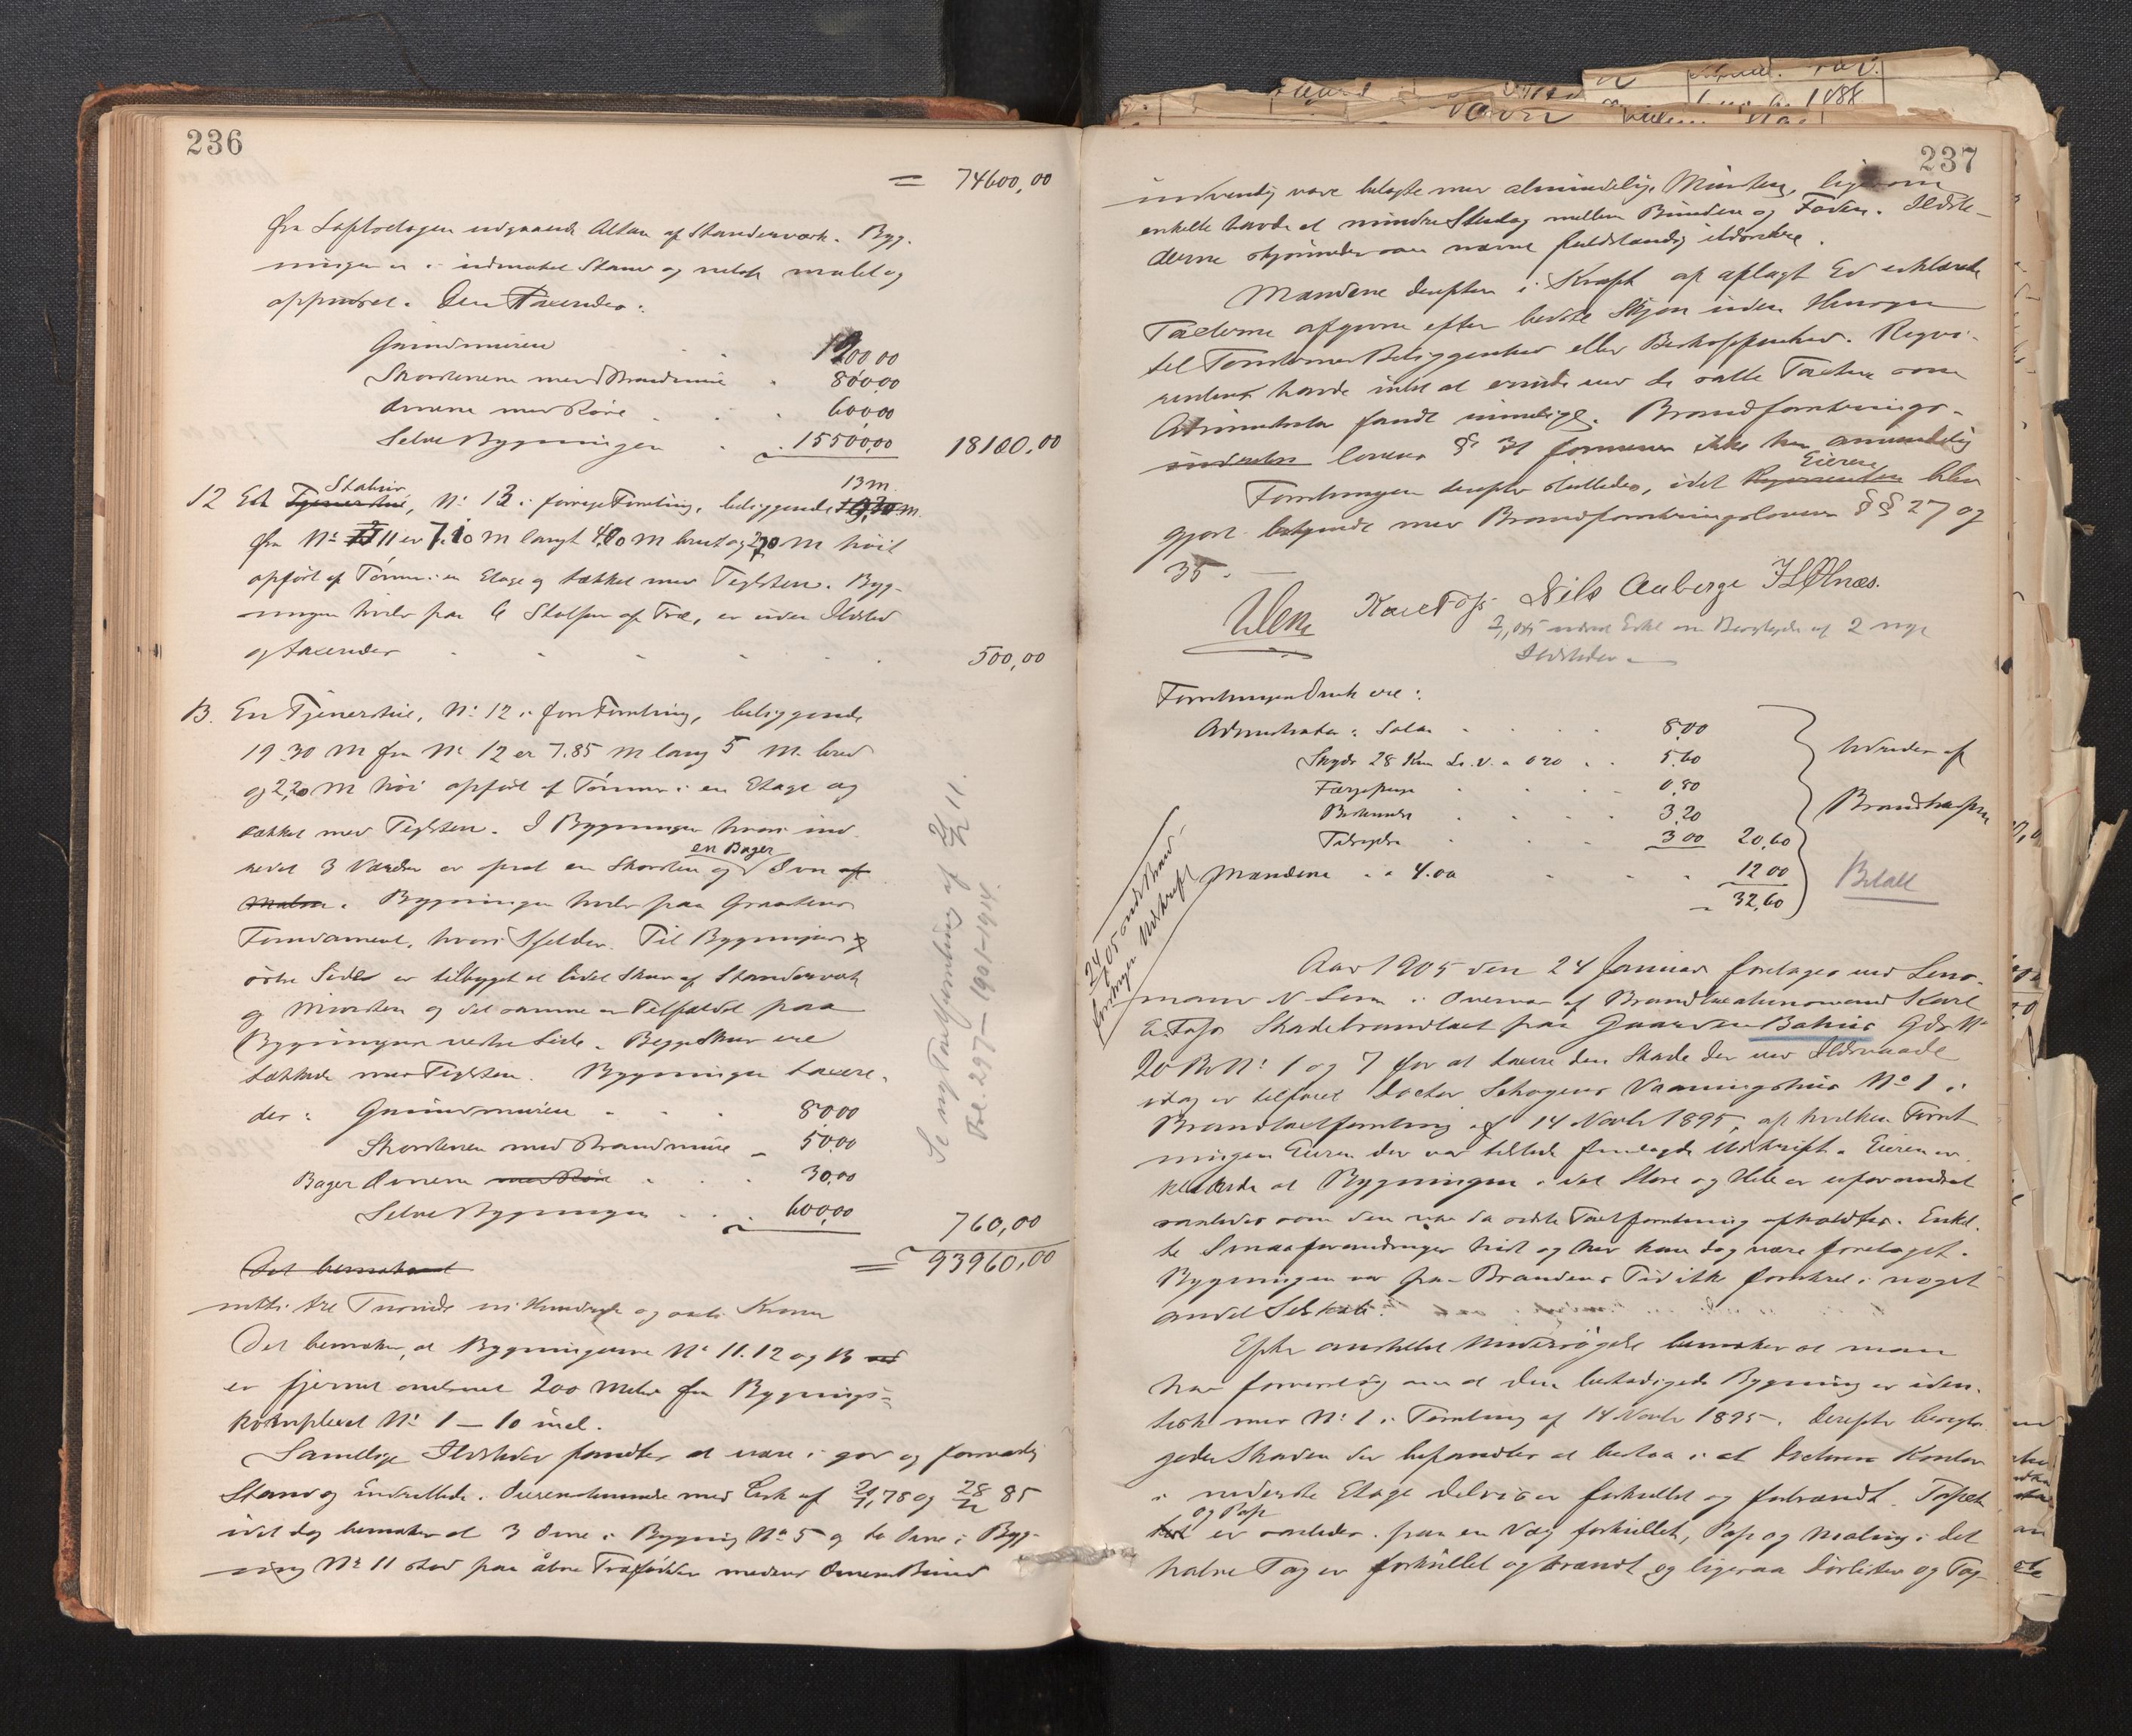 236
= 74600,00
fra Loftsetagen udgaaende Altan af Standerværk. Byg-
ningen er i udmærket Stand og netop malet og
oppudset. Den taxeredes:
Grundmuren 1200 00
Skorstenene med Brandmure 800,00
Ovnene med Röre 600,00
Selve Bygningen 15500,00 18100,00
Stabur 13 m.
12 Et Tjenerhus, No 13 i forrige Forretning, beliggende 19,30 m.
fra No 11 er 7.10 m langt 4,80 m bredt og m höit
opfört af Tömmer i en Etage og tækket med Teglsten. Byg-
ningen hviler paa 6 Stolper af Træ, er uden Ildsted
og taxeredes 500,00
13. En Tjenerstue, No 12 i forr Forretning, beliggende
19 30 m fra No 12 er 7.85 m lang 5 m. bred
og 2,20 m höi opfört af Tömmer i en Etage og
tækket med Teglsten. I Bygningen hvori ind-
en Bager
redet 3 Værelser er opsat en Skorsten og Ovn af
Malm. Bygningen hviler paa Graastens
Fundament, hvori Kjelder. Til Bygningens
östre Side er tilbygget et lidet Skur af Standerværk
og Mursten og det samme er Tilfældet paa
Bygningens vestre Side. Begge Skur ere
tækkede med Teglsten. Bygningen taxere-
des: Grundmuren 80,00
Skorstenen med Brandmure 50,00
Bager Ovnen med Röre 30,00
Selve Bygningen 600,00 760,00
Det bemærkes = 93960,00
nitti tre Tusinde ni Hundrede og seksti Kroner
Det bemærkes, at Bygningerne No 11. 12 og 13
er fjernet omtrent 200 Meter fra Bygnings-
komplexet No 1 — 10 incl.
Samtlige Ildsteder fandtes at være i god og forsvarlig
Stand og indrettede overensstemmende med Cirk af 21/1, 78 og 28/12 85
idet dog bemærkes at 3 Ovne i Bygning No 5 og to Ovne i Byg-
ning No 11 stod paa åbne Træfödder medens Ovnens Bund
Se ny Taxtforretning af 2/12 11.
Fol. 297 — 1901-1914.
237
indvendig vare belagte med almindelige Mursten, ligesom
enkelte havde et mindre Stenlag mellem Bunden og Foden. Ildste-
derne skjönnedes som nævnt fuldstændig ildsikre.
Mændene derefter i Kraft af aflagt Ed erklærede
Taxterne afgivne efter bedste Skjön uden Hensyn
til Tomternes Beliggenhed eller Beskaffenhed. Reqvi-
renten havde intet at erindre ved de satte Taxter som
Administrator fandt rimelige. Brandforsikrings-
lovens § 31 formenes ikke her anvendelig
Eieren
Forretningen derefter sluttedes, idet Reqvirenten blev
gjort bekjendt med Brandforsikringslovens §§ 27 og
35.
Karl Foss Nils Auberge
udstedt Cirk om af 2 nye
Ildsteder
Forretningen Omk ere:
Administrator: Salær 8,00
Skyds 28 Km 5,60
Færgepenge 0,80
3,20
3 00 20,60
Mændene à 4.00 12 00
32,60
Udredes af
Brandkassen
Betalt
24/1 05 Brand-
Udskrift
Aar 1905 den 24 Januar foretages ved Lens-
mann N Lem i Overvær af Brandtaxationsmand Karl
E. Foss Skadebrandtaxt paa Gaarden Bahus Gds No
20 Br No 1 og 7 for at taxere den Skade der ved Ildsvaade
idag er tilföiet Doctor Vaaningshus No 1 i
Brandtaxtforretning af 14 Novbr 1895, af hvilken Forret
ningen Eieren der var tilstede fremlagde Udskrift. Eieren er-
klærede at Bygningen i det Store og Hele er uforandret
saaledes som den var da sidste Taxtforretning afholdtes. Enkel-
te Smaaforandringer hist og her kan dog være foretaget.
Bygningen var paa Brandens Tid ikke forsikret i noget
andet Selskab.
Efter anstillet Undersögelse bemærkes at man
har forvisset sig om at den beskadigede Bygning er iden-
tisk med No 1 i Forretning af 14 Novbr 1895. Derefter besigti-
gedes Skaden der befandtes at bestaa i at Doctorens Kontor
i nederste Etage delvis er forkullet og forbrændt. Tapet
og Pap
er saaledes paa en Væg forkullet, Pap og Maling i det
halve Tag er forkullet og brændt og ligesaa Dörlister og Tag-